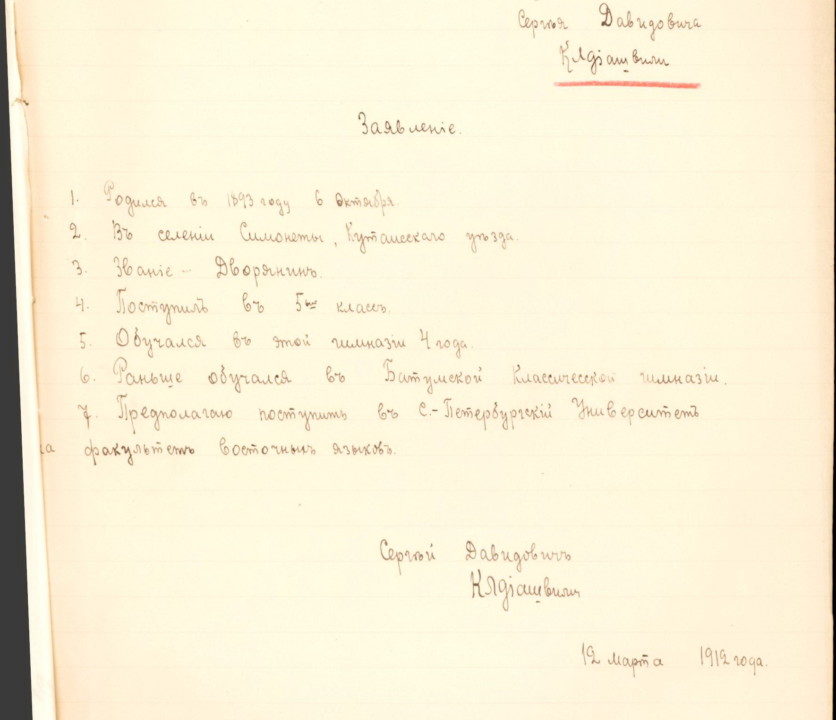 Сергѣя Давидовича
Клдіашвили
Заявленіе.
1. Родился въ 1893 году 6 октября.
2. Въ селеніи Симонеты, Кутаисскаго уѣзда.
3. Званіе – Дворянинъ.
4. Поступилъ въ 5ый классъ.
5. Обучался въ этой гимназіи 4 года.
6. Раньше обучался въ Батумской классической гимназіи.
7. Предполагаю поступить въ С.-Петербургскій Университетъ
на факультетъ восточныхъ языковъ.
Сергѣй Давидовичъ
Клдіашвили
12 марта 1912 года.